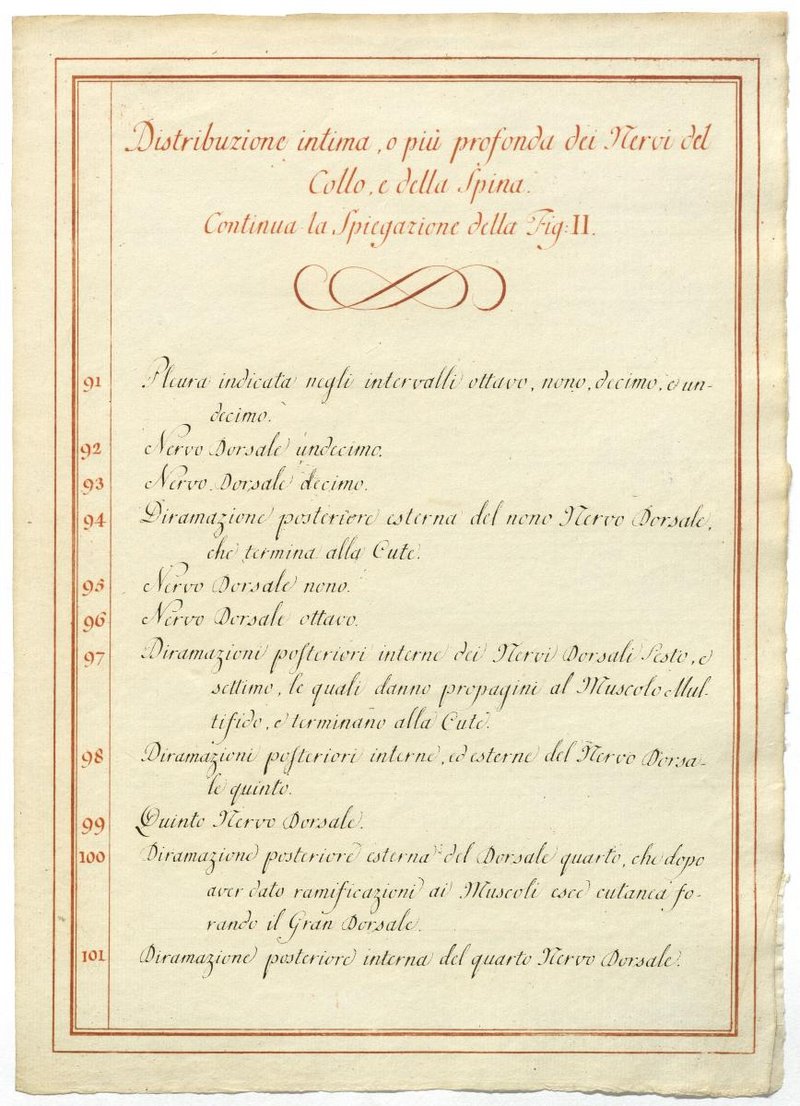 Distribuzione intima, o più profonda dei Nervi del
Collo, e della Spina.
Continua la Spiegazione della Fig: II.
91 Pleura indicata negli intervalli ottavo, nono, decimo, e un-
decimo.
92 Nervo Dorsale undecimo.
93 Nervo Dorsale decimo.
94 Diramazione posteriore esterna del nono Nervo Dorsale,
che termina alla Cute.
95 Nervo Dorsale nono.
96 Nervo Dorsale ottavo.
97 Diramazioni posteriori interne dei Nervi Dorsali Sesto, e
settimo, le quali danno propagini al Muscolo Mul-
tifido, e terminano alla Cute.
98 Diramazioni posteriori interne, ed esterne del Nervo Dorsa-
le quinto.
99 Quinto Nervo Dorsale.
100 Diramazione posteriore esterna del Dorsale quarto, che dopo
aver dato ramificazioni ai Muscoli esce cutanea fo-
rando il Gran Dorsale.
101 Diramazione posteriore interna del quarto Nervo Dorsale.